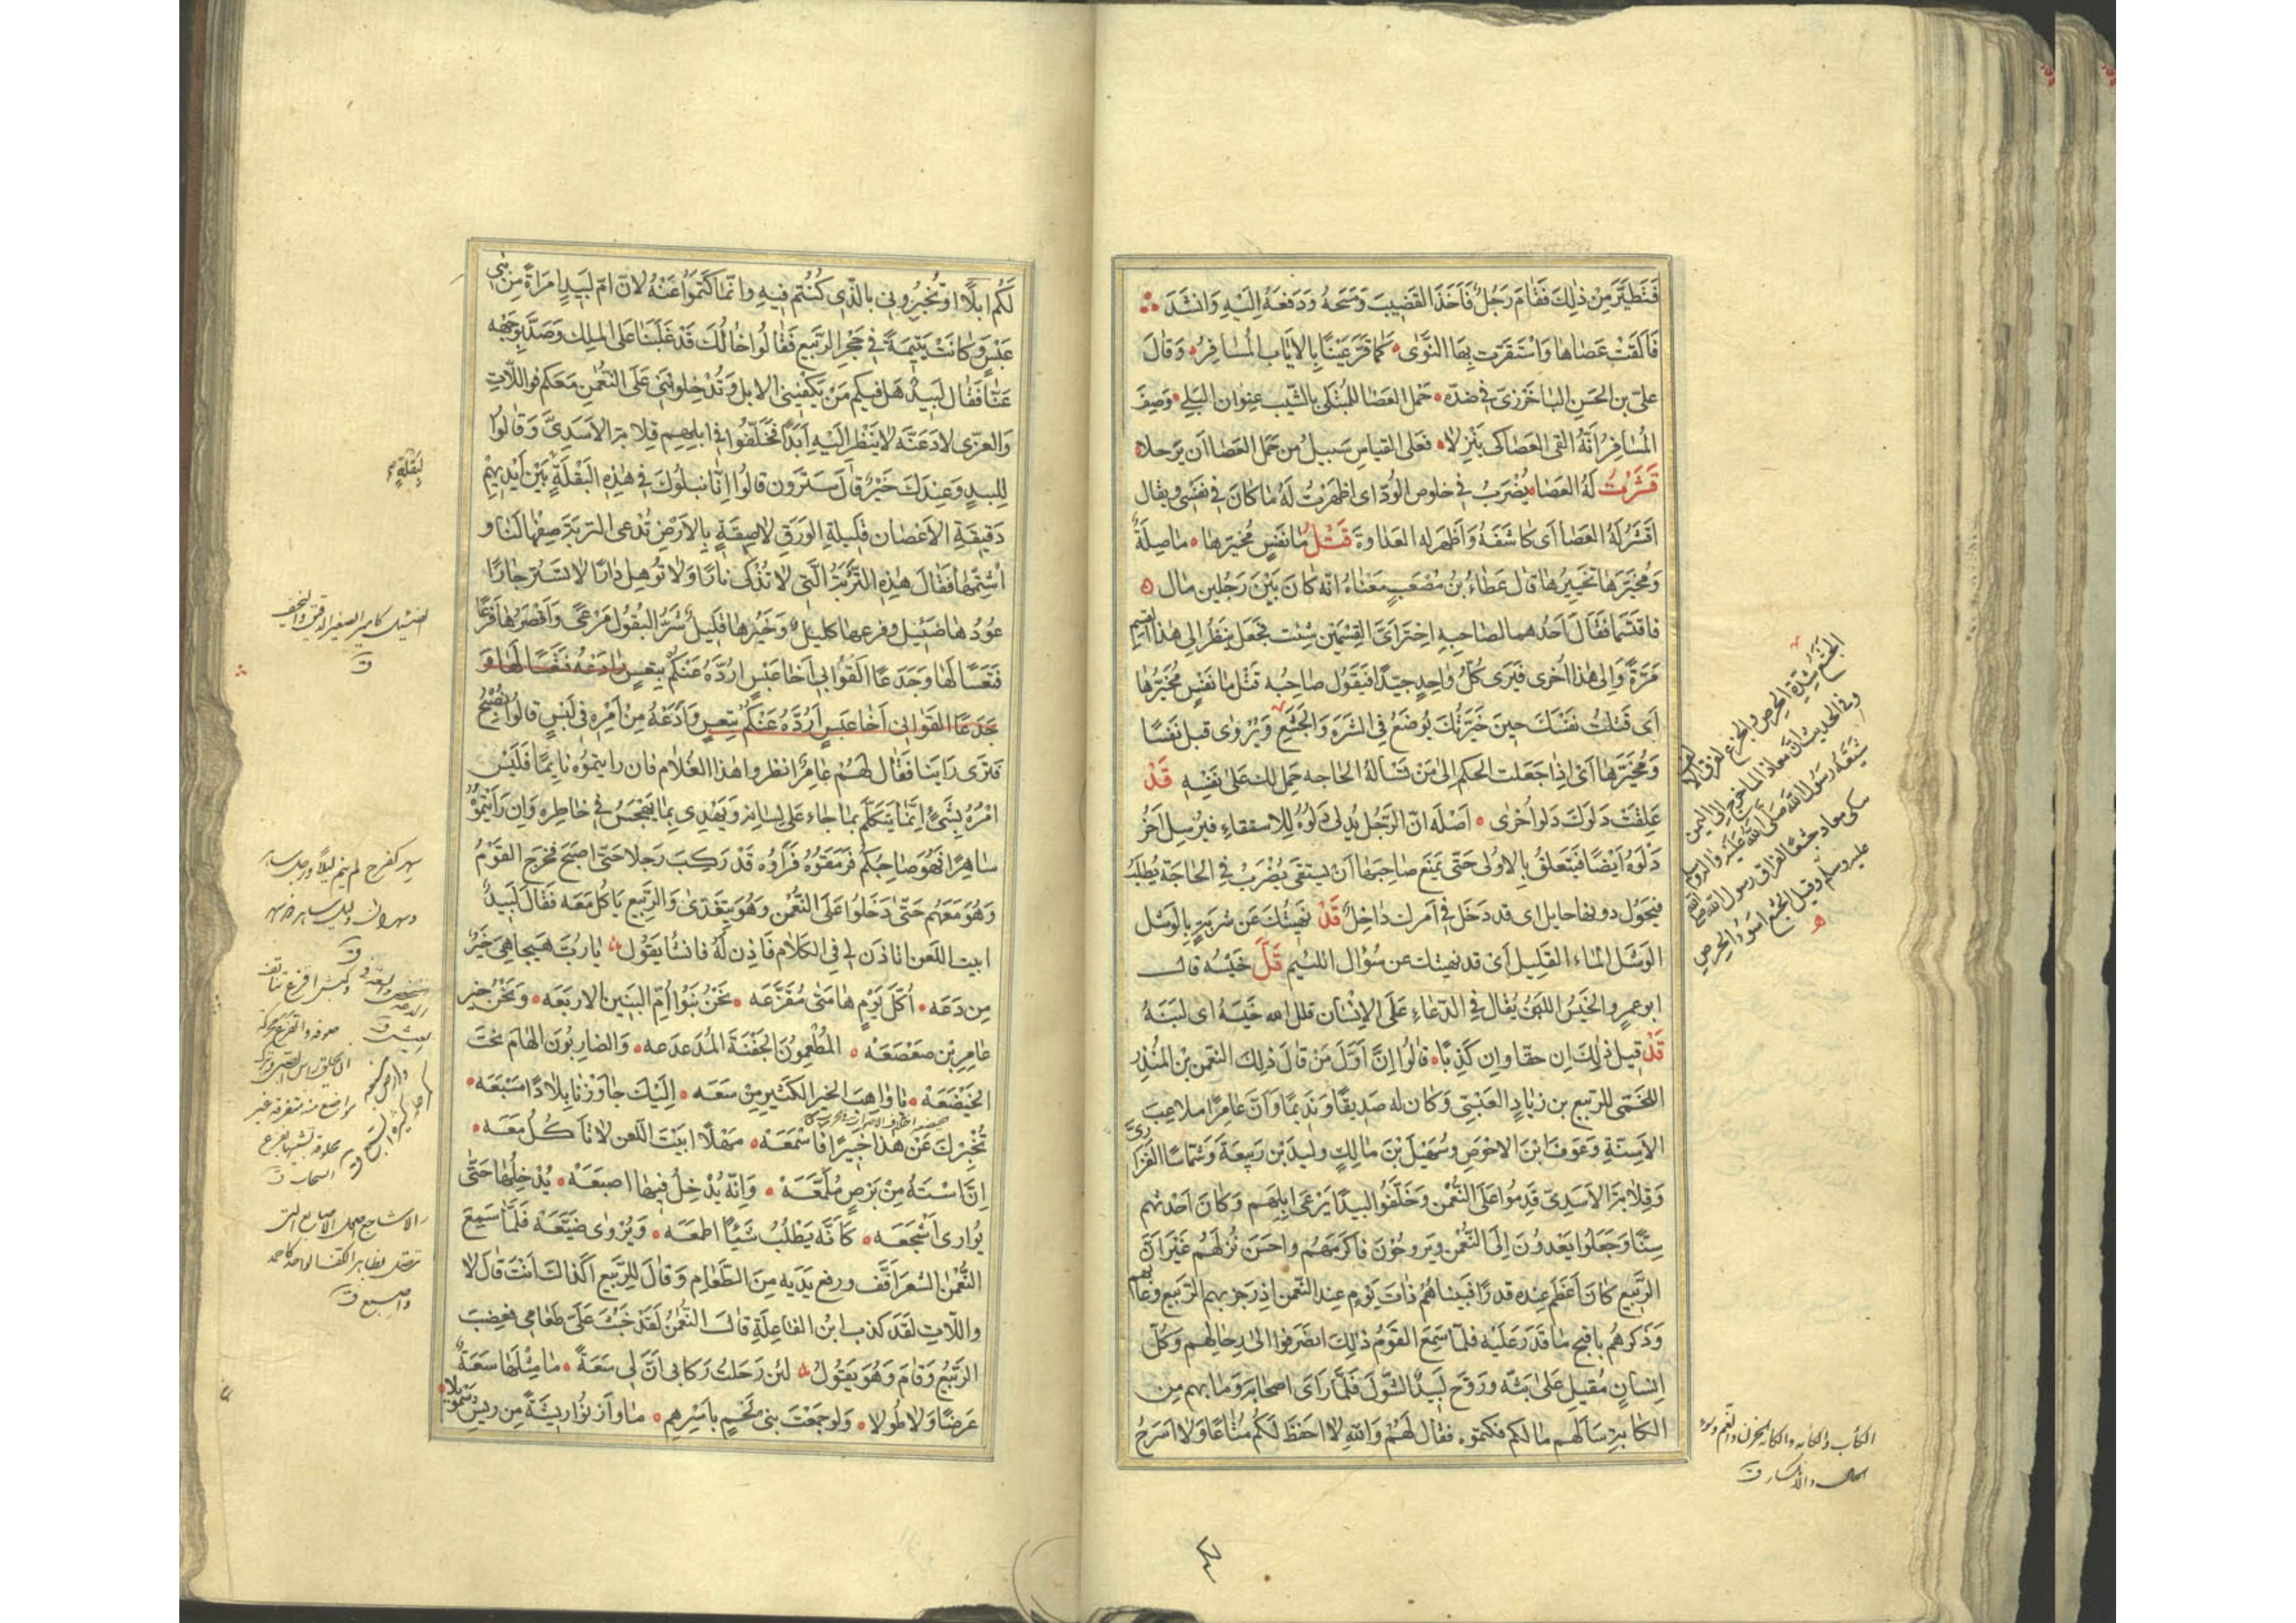 فَتَطَيَّرَ مِنْ ذٰلِكَ فَقَامَ رَجُلٌ فَاَخَذَ القَضِيبَ وَمَسَحَهُ وَدَفَعَهُ اِلَيْهِ وَانْشَدَ
فَاَلْقَتْ عَصَاهَا وَاسْتَقَرَّت بِهَا النَّوٰى كَمَا قَرَّ عَيْنًا بِالاِيَابِ المُسَافِرُ وَقَالَ
علىّ بن الحَسَنِ البَاخَرْزِىّ فى ضدّه حَمْلُ العَصَا للمُبْتَلَى بِالشَّيْبِ عِنوان البَلِي وُصِفَ
المُسَافِرُ اَنَّهُ القى العَصَا كى يَنْزِلَا فعَلى القِياسِ سَبيلُ من حَمَل العَصَا اَن يَرحلا
قَشَرْتُ لَهُ العَصَا يُضْرَبُ فى خلوص الوُدّ اى اظهَرْتُ لَهُ مَا كَانَ فى نَفْسِى ويقال
اَقشُرْ لَهُ العَصَا اَى كَاشِفْهُ وَاَظْهِر له العَدَاوَةَ قَتْلُ مَا نَفْسٍ مُخَيَّرِهَا مَا صِلَةٌ
وَمُخَيَّرَهَا تَخْيِيرُهَا قال عَطَاءُ بنُ مُصْعَبٍ مَعْنَاهُ انّه كَانَ بَيْنَ رَجُلين مَال
فاقتَسَمَا فَقَالَ اَحَدُهما لصَاحِبِهِ اخْتَر اَىَّ القِسْمَيْن شِئْت فجَعَل يَنظُر اِلى هٰذا القسم
مَرَّةً وَاِلى هٰذا اُخرى فَيَرى كُلَّ وَاحِدٍ جيّدًا فيَقُول صَاحِبُه قَتْلُ مَا نَفْسٍ مُخَيَّرُهَا
اَى قَتَلْتَ نَفْسَكَ حِينَ خَيَّرْتُكَ يُوضَعُ فِى الشَرَهِ وَالجَشَعِ وَيُرْوٰى قبل نَفْسًا
وَمُخَيَّرَهَا اَىْ اِذَا جَعَلت الحكم اِلىٰ مَنْ تَسْاَلهُ الحَاجه حَمل لك عَلىٰ نَفْسِهِ قَدْ
عَلِقَتْ دَلْوَكَ دَلوٌ اُخرٰى اَصْله انّ الرَّجُل يُدلى دَلْوَهُ لِلاستقاءِ فيُرسِل آخَرُ
دَلْوَهُ اَيْضًا فَيَتَعلقُ بِالاُولى حَتّى يَمْنَعَ صَاحِبَهَا اَنْ يَستقى يُضْرَبُ فى الحَاجَة يُطْلَبُ
فيَحُول دونهَا حايل اى قد دَخَل فى اَمرك دَاخِلٌ قَدْ نَهَيْتُكَ عَن شَربَةٍ بِالوَشَل
الوَشَل المَاء القَلِيل اَى قد نَهيتك عن سُؤال اللئيم قَلَّ خَيْسُه قال
ابو عمرٍو الخَيْسُ اللبَنُ يُقال فى الدّعَاءِ عَلَى الاِنْسَان قلل الله خَيْسَهُ اى لبَنَهُ
قَدْ قيلَ ذٰلكَ اِن حقّا واِن كَذِبًا قالُوا اِنَّ اَوَّلَ مَن قَالَ ذٰلك النعْمٰن بنُ المُنذِر
اللخَمى للرّبيع بن زيَادٍ العَبْسِىّ وَكَان له صَدِيقًا وَنَدِيمًا وَاَنَّ عَامِرًا ملاعِبَ
الاَسِنَّةِ وَعَوفَ ابْنَ الاحْوَصِ وسُهَيْلَ بنَ مَالِكٍ ولبيدَ بْن رَبيعَةَ وَشَمَّاسًا الفَزَارىَّ
وَقِلابَةَ الاَسَدِىّ قَدِمُوا عَلَى النُّعْمٰن وَخَلّفُوا لبيدًا يَرْعَى اِبلَهُم وَكَان اَحْدَثهُم
سِنًّا وَجَعَلُوا يَغدُونَ اِلَى النُّعْمٰن ويَروحُونَ فاكرَمَهُم واحسَنَ نُزلَهُم غَيْرَ اَنّ
الرّبِيع كَانَ اَعْظَم عنده قدرًا فَبينَا هُمْ ذَاتَ يَوْمٍ عِند النّعمٰن اِذ رَجَز بهم الرّبيع وعَابهم
وَذَكرهُم باقبح مَا قَدَرَ عَلَيْه فلمّا سَمِعَ القَوْمُ ذٰلكَ انصَرَفوا الىٰ رِحَالِهم وَكُلّ
اِنسَانٍ مُقْبِلٍ عَلىٰ بَثّه ورَوّح لَبيدٌ الشّولَ فَلَمَّا رَاَى اصحَابه وَمَا بهم مِن
الكَابَةِ سَاَلهم مَا لكم فكتموه فقَال لَهُمْ وَاللهِ لاَ احفَظُ لَكُم مَتَاعًا وَلاَ اسَرحُ
الجَشَع شدّة الحرص والجزع لفراق الالف
وفى الحديث انّ معاذًا لمّا خرج الى اليمن
شَيَّعَهُ رَسُول الله صَلَّى الله عَلَيْه وآله وسلم
بكى معاذ جشعًا لفراق رسول الله صلى الله
عليه وسلّم وقيل الجشع اسوء الحرص
الكأب والكأبه والكابه الحزن والغم وسوء
الحال والانكسار ق
لَكُم ابلًا او تُخبِرُونِى بالّذِى كُنْتم فيهِ وانّما كَتَمُوا عَنْهُ لانّ امّ لَبِيدٍ امرَاَةٌ مِن بنى
عَبْسٍ وَكَانَتْ يَتِيمَةً فى حَجْرِ الرَّبِيع فَقَالُوا خَالُكَ قَدْ غَلَبَنَا عَلَى المَلِكِ وَصَدَّ بِوَجْهِهِ
عَنَّا فَقَال لَبِيدٌ هَل فيكم مَنْ يَكفينى الابل وَتُدْخِلونَنى عَلَى النُّعْمٰن مَعَكم فواللّات
وَالعزّى لاَدَعَنَّه لا يَنظر اِلَيْهِ اَبَدًا فخَلّفُوا فى ابلِهِم قِلابة الاَسَدِىَّ وَقَالُوا
لِلبيدٍ وَعِندَكَ خَيْرٌ قَالَ سَتَرَون قالُوا اِنّا نبلُوكَ فى هٰذِهِ البَقْلَةِ بَيْنَ اَيْدِيهِمْ
دَقيقَةِ الاَغصَان قَليلةِ الوَرَقِ لاصِقَةٍ بِالاَرْضِ تُدْعى التربَةَ صِفْهَا لَنَا و
اشْتِمْهَا فقَالَ هٰذِه التَّرْبَةُ الَّتى لا تُذْكى نَارًا وَلا تُوهِل دَارًا لا تَسْتُر جَارًا
عُودُهَا ضَئيل وفرعهَا كليلٌ وَخَيْرُهَا قليلٌ شَرُّ البُقُول مَرْعًى وَاَقصَرُهَا فَرْعًا
فَتَعْسًا لَهَا وَجَدعًا القُوا بى اَخَا عَبْسٍ اردّهُ عَنْكُم بتعسٍ وادعه فتعسًا لها و
جَدعًا القوا بى اَخَا عَبسٍ اَردّهُ عَنكُم بتعسٍ وَاَدَعْهُ مِنْ اَمرِهِ فى لَبْسٍ قالُوا نُصْبِحُ
فنَرى رَايَنَا فقَال لَهُم عَامِرٌ انظُروا هٰذا الغُلام فان رايتموُه نَايمًا فَلَيْسَ
امْرُهُ بِشَىْءٍ اِنَّمَا يَتَكَلّم بمَا جَاءَ عَلى لِسَانِهِ وَيَهْذى بِمَا يَهْجسُ فى خَاطِره وَاِن رَاَيْتُموُهُ
سَاهِرًا فَهُوَ صَاحِبُكُم فَرَمَقوُهُ فَرَاَوُه قَدْ رَكِبَ رَحلا حَتّى اصبَحَ فخَرَجَ القَوْمُ
وَهُوَ مَعَهُم حَتّى دَخَلُوا عَلَى النُّعْمٰن وَهُوَ يَتَغَدّى وَالرَّبِيع يَاكُل مَعَه فَقَال لَبِيدٌ
ابيت اللَعن اتاذَن لى فى الكَلام فَاَذِن لَهُ فانشَا يَقُول يَا رُبَّ هَيجَا هِىَ خَيْرٌ
مِن دَعَه اَكُلَّ يَوْمٍ هَامَتى مُقَزَّعَه نَحْنُ بَنُوا اُمِّ البَنِين الاربَعَه وَنَحْنُ خَير
عَامِر بْن صَعْصَعَه المُطْعِمُونَ الجَفْنَةَ المُدَعدَعه وَالضَّارِبُونَ الهَامَ تَحْتَ
الخَيْضَعَه يَا وَاهِبَ الخَيرِ الكَثِيرِ مِنْ سَعَه اِلَيْكَ جَاوَزْنَا بِلَادًا مَسْبَعَه
نُخْبِرُكَ عَنْ هٰذَا خَبِيرًا فَاسْمَعَه مَهْلًا ابَيْتَ اللّعن لا تَاكُل مَعَه
اِنَّ اسْتَهُ مِنْ بَرَصٍ مُلَمَّعَه وَاِنّه يُدْخِلُ فيهَا اصبَعَه يُدْخِلُهَا حَتّى
يُوارى اَشْجَعَه كَاَنَّه يَطْلُبُ شَيْئًا اطمعَه وَيُرْوٰى ضَيَّعَه فَلَمَّا سَمِعَ
النُّعْمٰن الشعرَ اَفّف ورفع يَدَيه مِنَ الطّعَامِ وَقَالَ لِلرّبيع اَكَذَاكَ اَنْتَ قَالَ لا
واللّاتِ لقَد كذب ابن الفَاعِلَةِ قَالَ النُّعْمٰنُ لَقَدْ خَبُثَ عَلَىَّ طَعَامِى فغضِبَ
الرّبيعُ وَقَامَ وَهُوَ يَقُول لئن رَحَلْتُ رَكابى اَنَّ لى سَعَةً مَا مِثْلهَا سَعَةٌ
عَرضًا وَلا طُولا وَلو جمَعْتَ بَنى لَخْمٍ بِاَسْرِهِم مَا وَازَنُوا ريشَةً مِن رِيش سَمْويلا
لِبَقْلَةٍ صح
الضئيل كامير الصغير الدقيق والنحيف
ق
سهر كفرح لم ينم ليلًا ورجل ساهر
وسهران وليل ساهر
ق
محلوقة تشبيها بقزع
السحاب ق
الاشاجع
تتصل بظاهر الكف الواحد كاحمد
واصبع ق